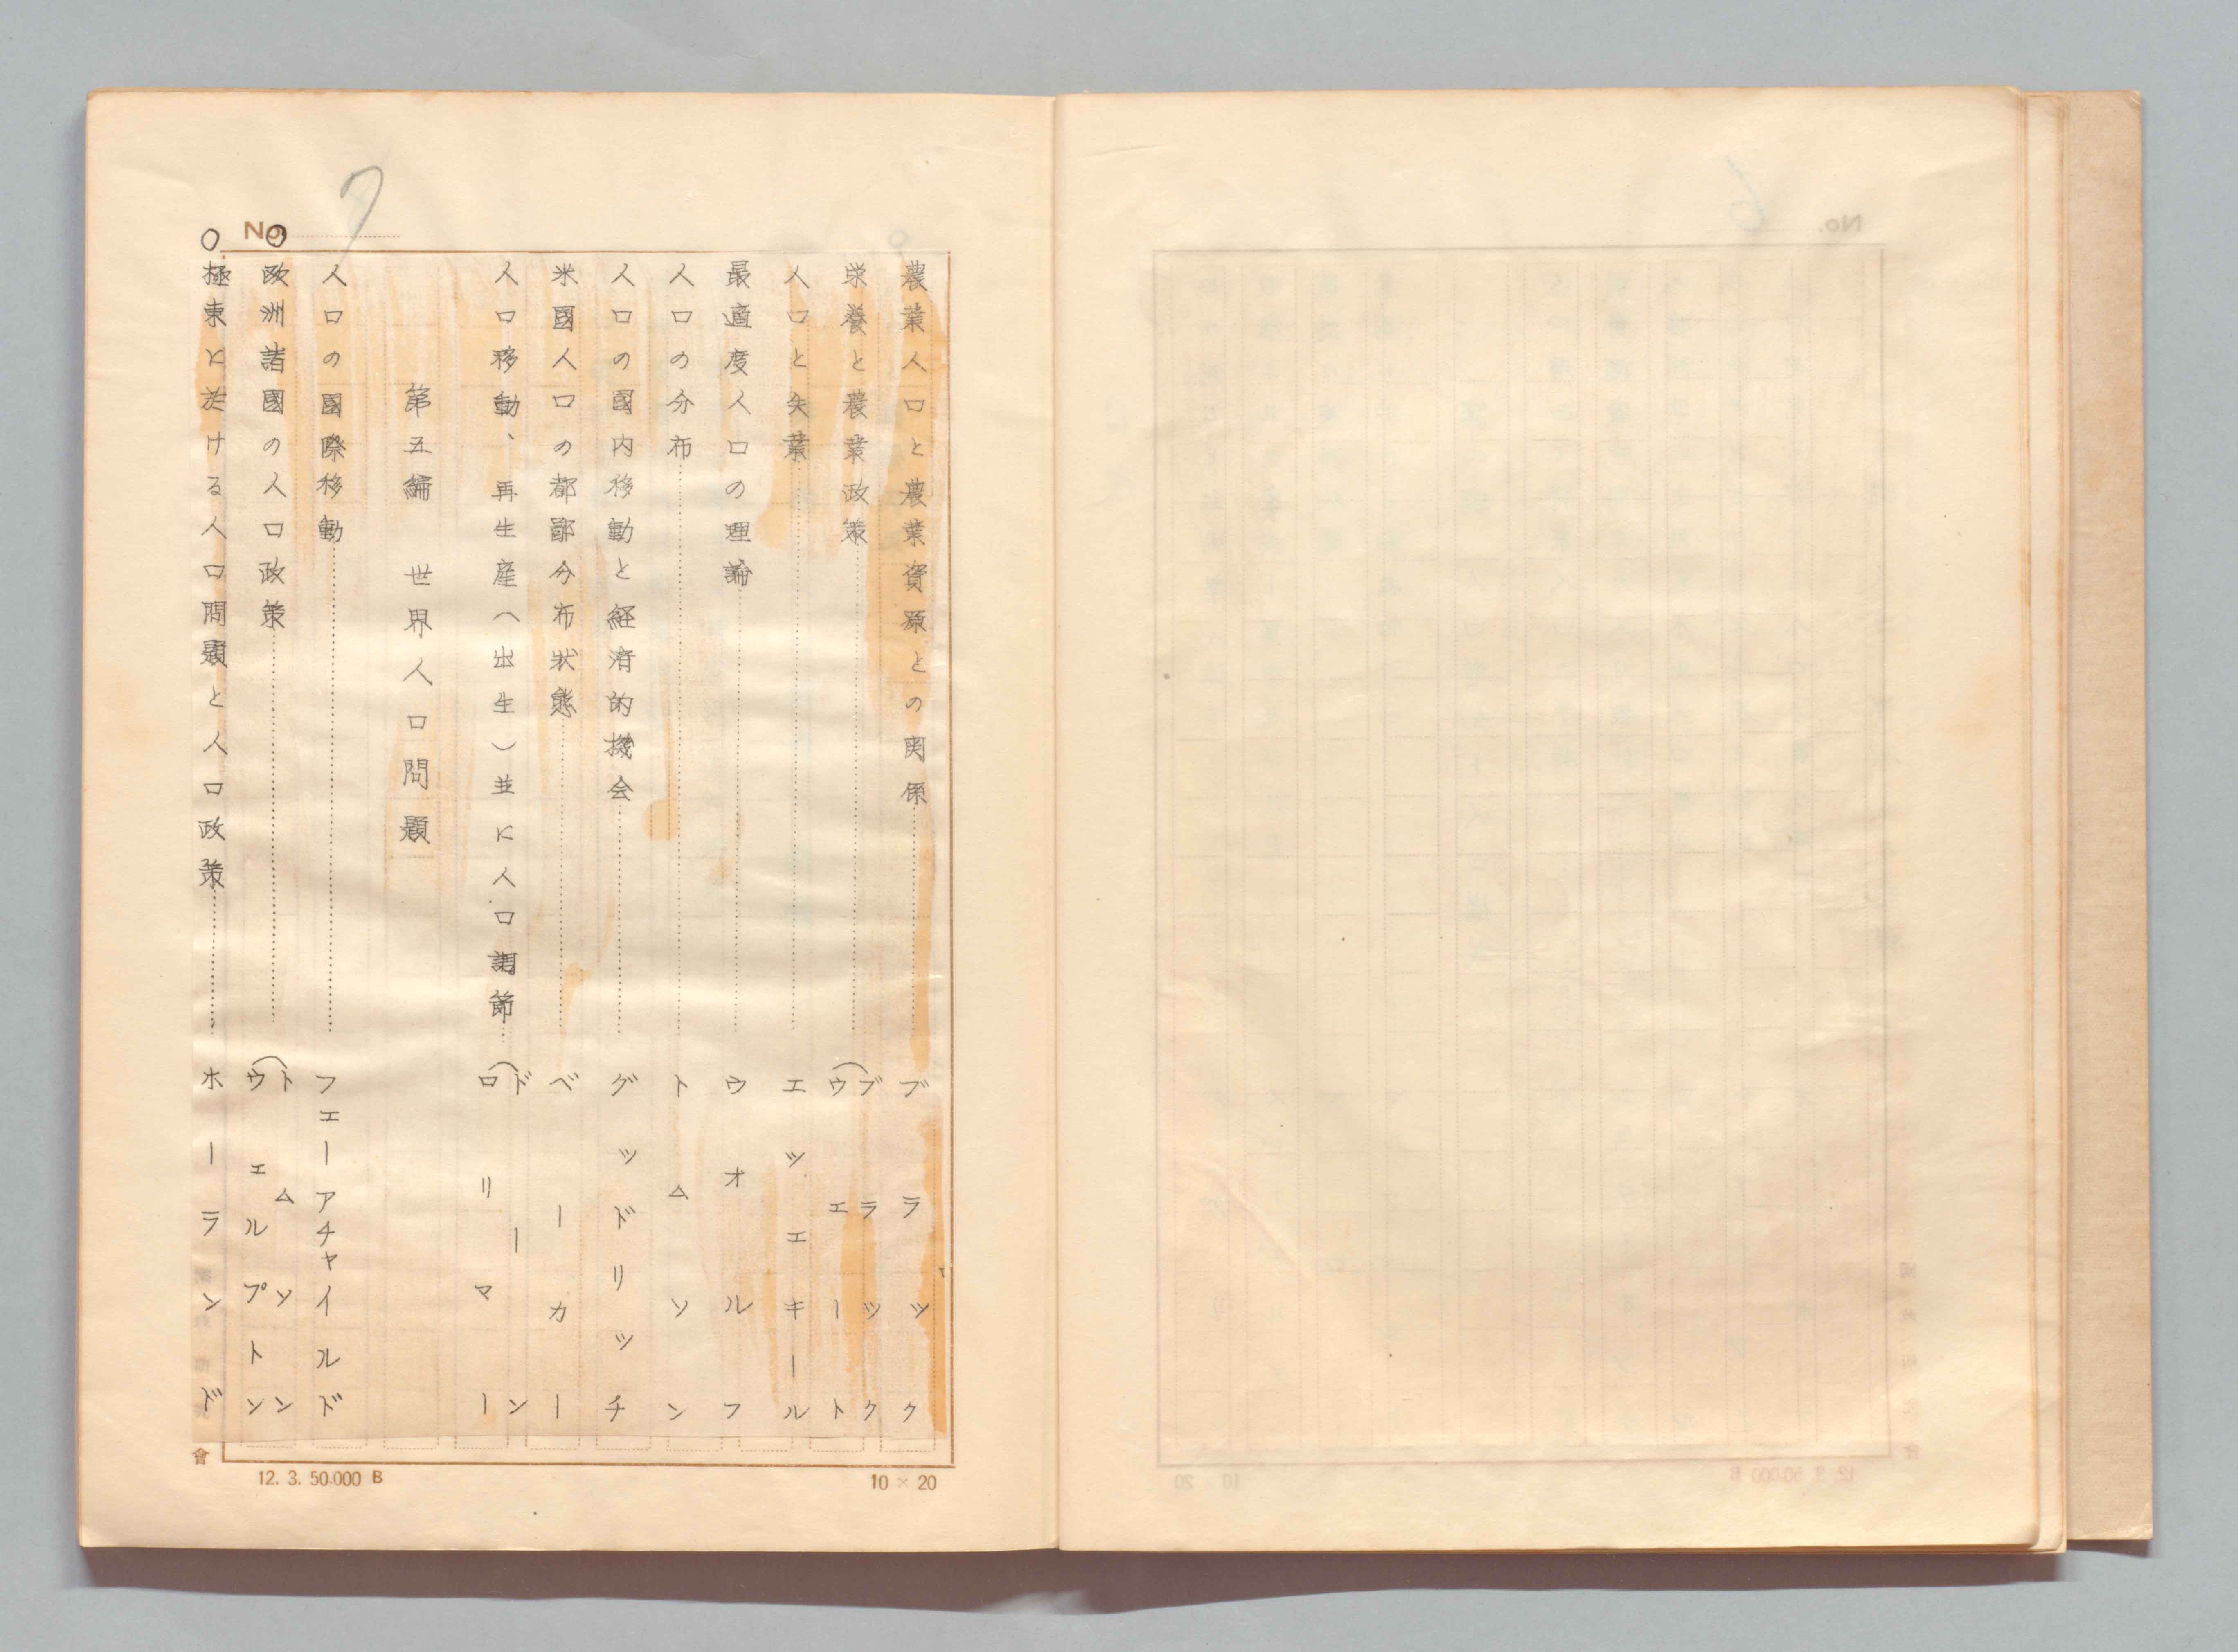 No. 7
農業人口と農業資源との関係……ブラック
栄養と農業政策……(ブラック
ウエート
人口と失業……エツエキール
最適度人口の理論……ウオルフ
人口の分布……トムソン
人口の國内移動と経済的機会……グッドリッチ
米國人口の都鄙分布状態……ベーカー
人口移動、再生産(出生)並に人口調節……(ドーン
ロリマー
第五編 世界人口問題
人口の國際移動……フェーアチャイルド
○欧洲諸國の人口政策……(トムソン
ウェルプトン
○極東に於ける人口問題と人口政策……ホーランド
會
12. 3. 50.000 B
10×20